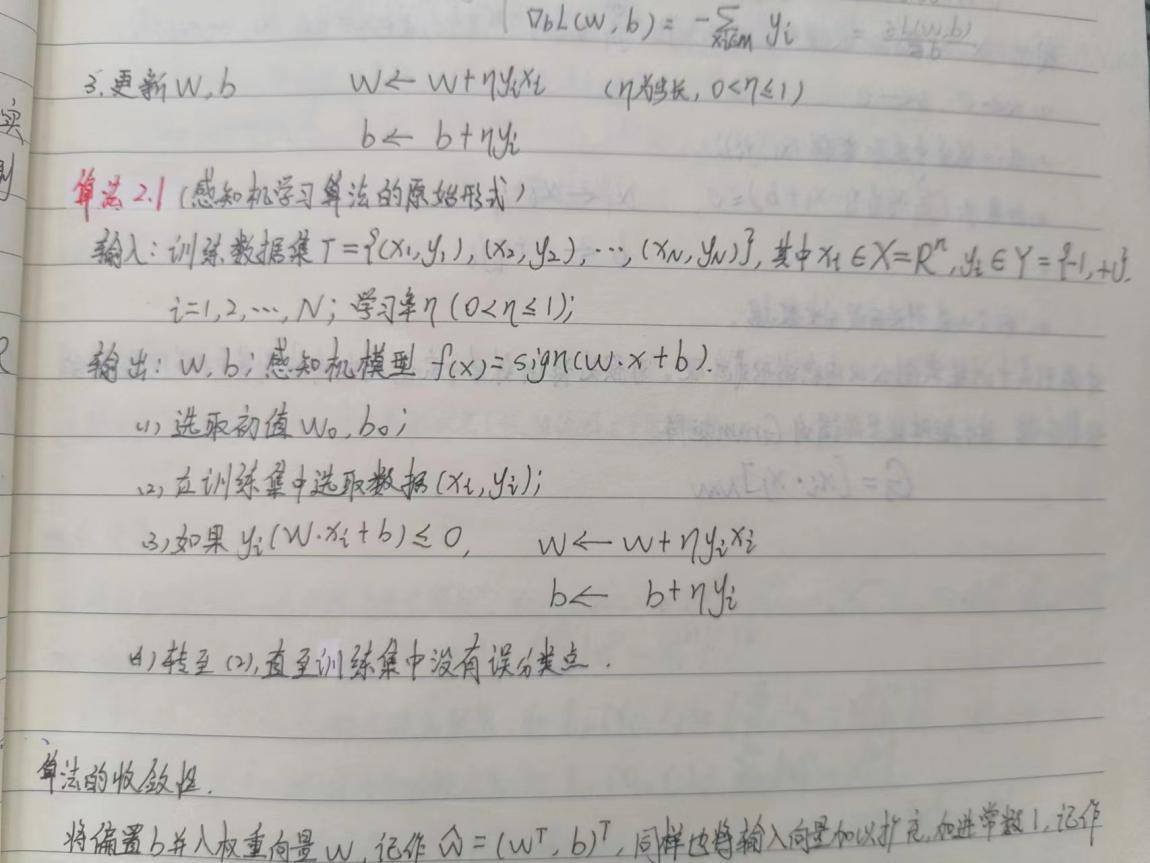 ∇bL(w,b) = -∑_{xi∈m} yi
3. 更新w,b  w← w+ηyixi  (η为步长, 0<η≤1)
b← b+ηyi
算法2.1 (感知机学习算法的原始形式)
输入: 训练数据集T={(x1,y1), (x2,y2), ⋯, (xN,yN)}, 其中xi∈X=Rⁿ, yi∈Y={-1,+1}.
i=1,2,⋯,N; 学习率η(0<η≤1);
输出: w,b; 感知机模型 f(x)=sign(w·x+b).
(1) 选取初值w0,b0;
(2) 在训练集中选取数据(xi,yi);
(3) 如果 yi(w·xi+b)≤0,  w← w+ηyixi
b← b+ηyi
(4) 转至(2),直至训练集中没有误分类点.
算法的收敛性.
将偏置b并入权重向量w, 记作 ŵ=(wᵀ, b)ᵀ, 同样也将输入向量加以扩充,加进常数1,记作